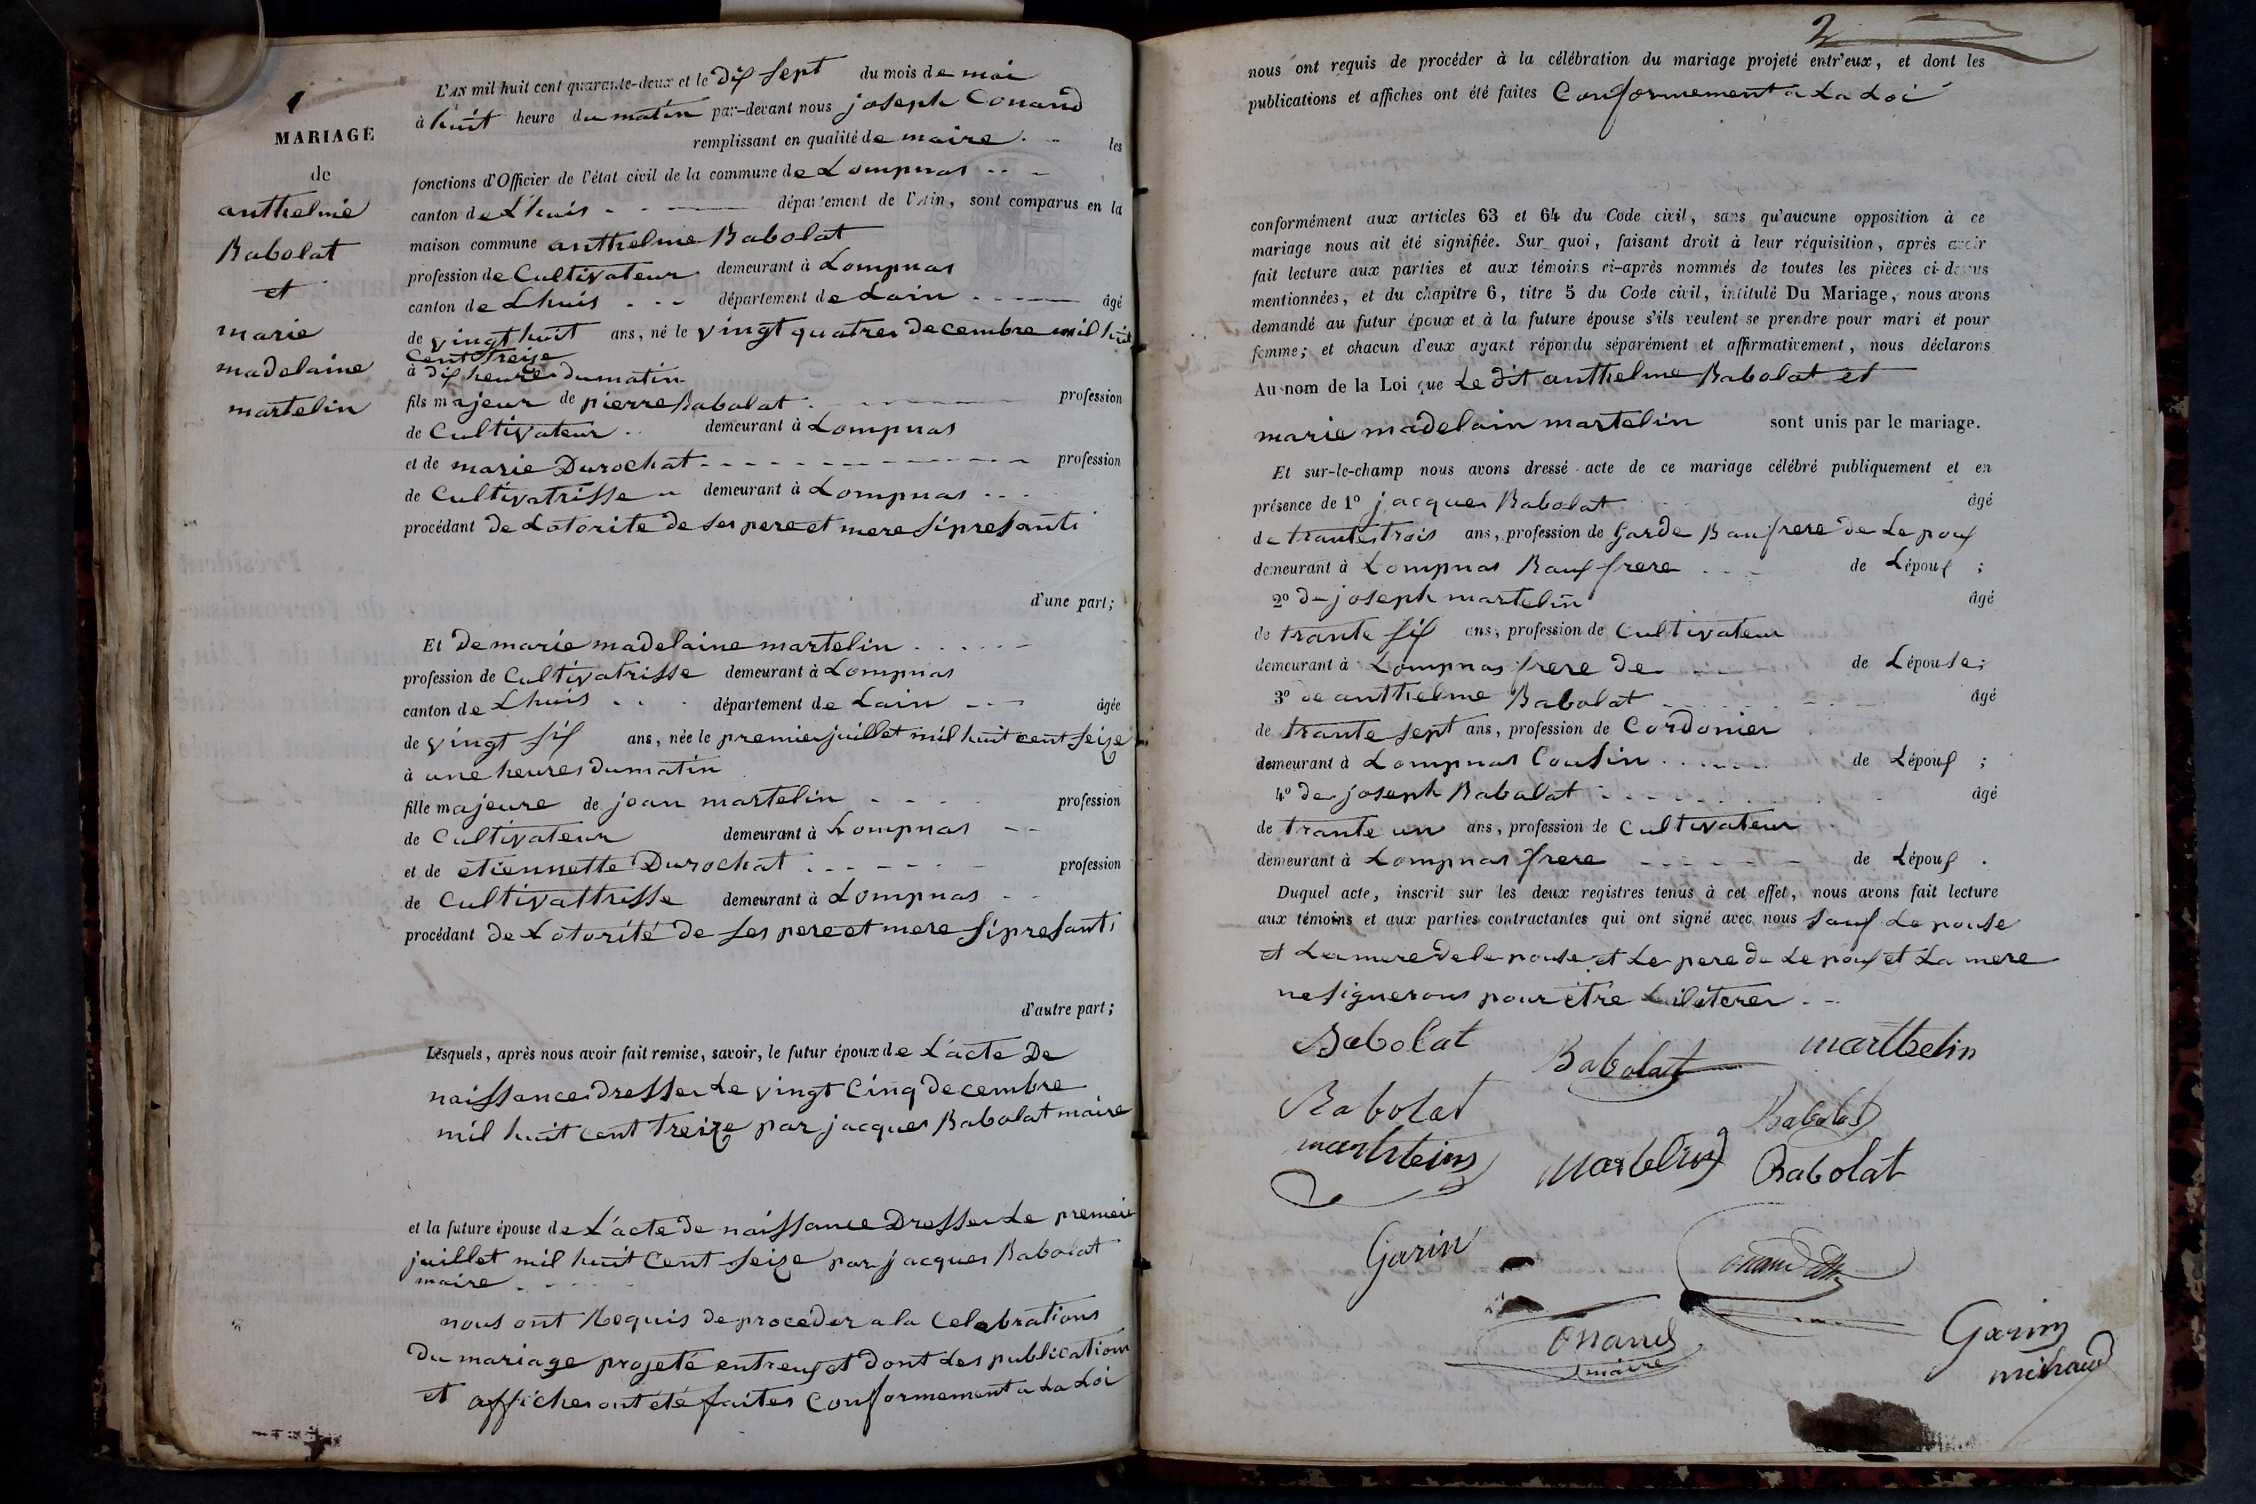 1
MARIAGE
de
anthelme
Babolat
et
marie
madelaine
martelin
L'AN mil huit cent quarante-deux et le dix sept du mois de mai
à huit heure du matin par-devant nous joseph Conand
remplissant en qualité de maire. - les
fonctions d'Officier de l'état civil de la commune de Lompnas
canton de L'huis département de l'Ain, sont comparus en la
maison commune anthelme Babolat
profession de Cultivateur demeurant à Lompnas
canton de Lhuis département de Lain âgé
de vingt huit ans, né le vingt quatres decembre mil huit
Cent Treize
à dix heures du matin
fils majeur de pierre Babolat profession
de Cultivateur demeurant à Lompnas
et de marie Durochat profession
de Cultivatrisse demeurant à Lompnas
procédant de Lotorite de ses pere et mere si presants
d'une part;
Et de marie madelaine martelin
profession de Cultivatrisse demeurant à Lompnas
canton de Lhuis département de Lain âgée
de vingt six ans, née le premier juillet mil huit cent seize
à une heures du matin
fille majeure de joan martelin profession
de Cultivateur demeurant à Lompnas
et de etiennette Durochat profession
de Cultivattrisse demeurant à Lompnas
procédant de Lotorité de ses pere et mere si presants
d'autre part;
Lesquels, après nous avoir fait remise, savoir, le futur époux de L'acte De
naissance dresser Le vingt Cinq decembre
mil huit cent treize par jacques Babolat maire
et la future épouse de L'acte de naissance Dresser Le premier
juillet mil huit Cent seize par jacques Babolat
maire
nous ont Requis de proceder a la Celebrations
Du mariage projeté entreux et Dont Les publications
et affiches ont été faites Conformement a La Loi
2
nous ont requis de procéder à la célébration du mariage projeté entr'eux, et dont les
publications et affiches ont été faites Conformement a La Loi
conformément aux articles 63 et 64 du Code civil, sans qu'aucune opposition à ce
mariage nous ait été signifiée. Sur quoi, faisant droit à leur réquisition, après avoir
fait lecture aux parties et aux témoins ci-après nommés de toutes les pièces ci-dessus
mentionnées, et du chapitre 6, titre 5 du Code civil, intitulé Du Mariage, nous avons
demandé au futur époux et à la future épouse s'ils veulent se prendre pour mari et pour
femme; et chacun d'eux ayant répondu séparément et affirmativement, nous déclarons
Au nom de la Loi que Le dit anthelme Babolat et
marie madelain martelin sont unis par le mariage.
Et sur-le-champ nous avons dressé acte de ce mariage célébré publiquement et en
présence de 1º jacques Babolat âgé
de trante trois ans, profession de Garde Baufrere de Lepoux
demeurant à Lompnas Baux frere de Lépoux ;
2º de joseph martelin âgé
de trante six ans, profession de Cultivateur
demeurant à Lompnas frere de de Lépouse;
3º de anthelme Babolat âgé
de trante sept ans, profession de Cordonier
demeurant à Lompnas Cousin de Lépoux ;
4º de joseph Babolat âgé
de trante un ans, profession de Cultivateur
demeurant à Lompnas frere de Lépoux .
Duquel acte, inscrit sur les deux registres tenus à cet effet, nous avons fait lecture
aux témoins et aux parties contractantes qui ont signé avec nous sauf Lepouse
et La mere de lepouse et Le pere de Lepoux et La mere
ne signerons pour être
Babolat
Babolat
marthelin
Babolat
Babolat
marthelin
Babolat
Garin
Onand
maire
Garin
michaud